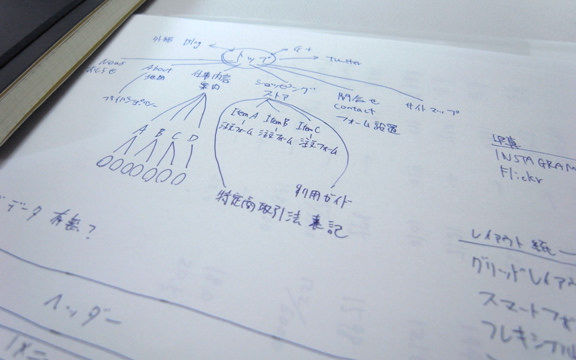 外部 Blog
G+
Twitter
トップ
About
About
仕事内容
案内
ショッピング
ストア
問合せ
contact
フォーム設置
サイトマップ
プライバシー
A B C D
Item A Item B Item C
注文フォーム 注文フォーム 注文フォーム
利用ガイド
特定商取引法 表記
写真
INSTAGRAM
Flickr
データ 有無?
レイアウト 統一
グリッドレイア
スマートフォ
フレキシブル
ヘッダー